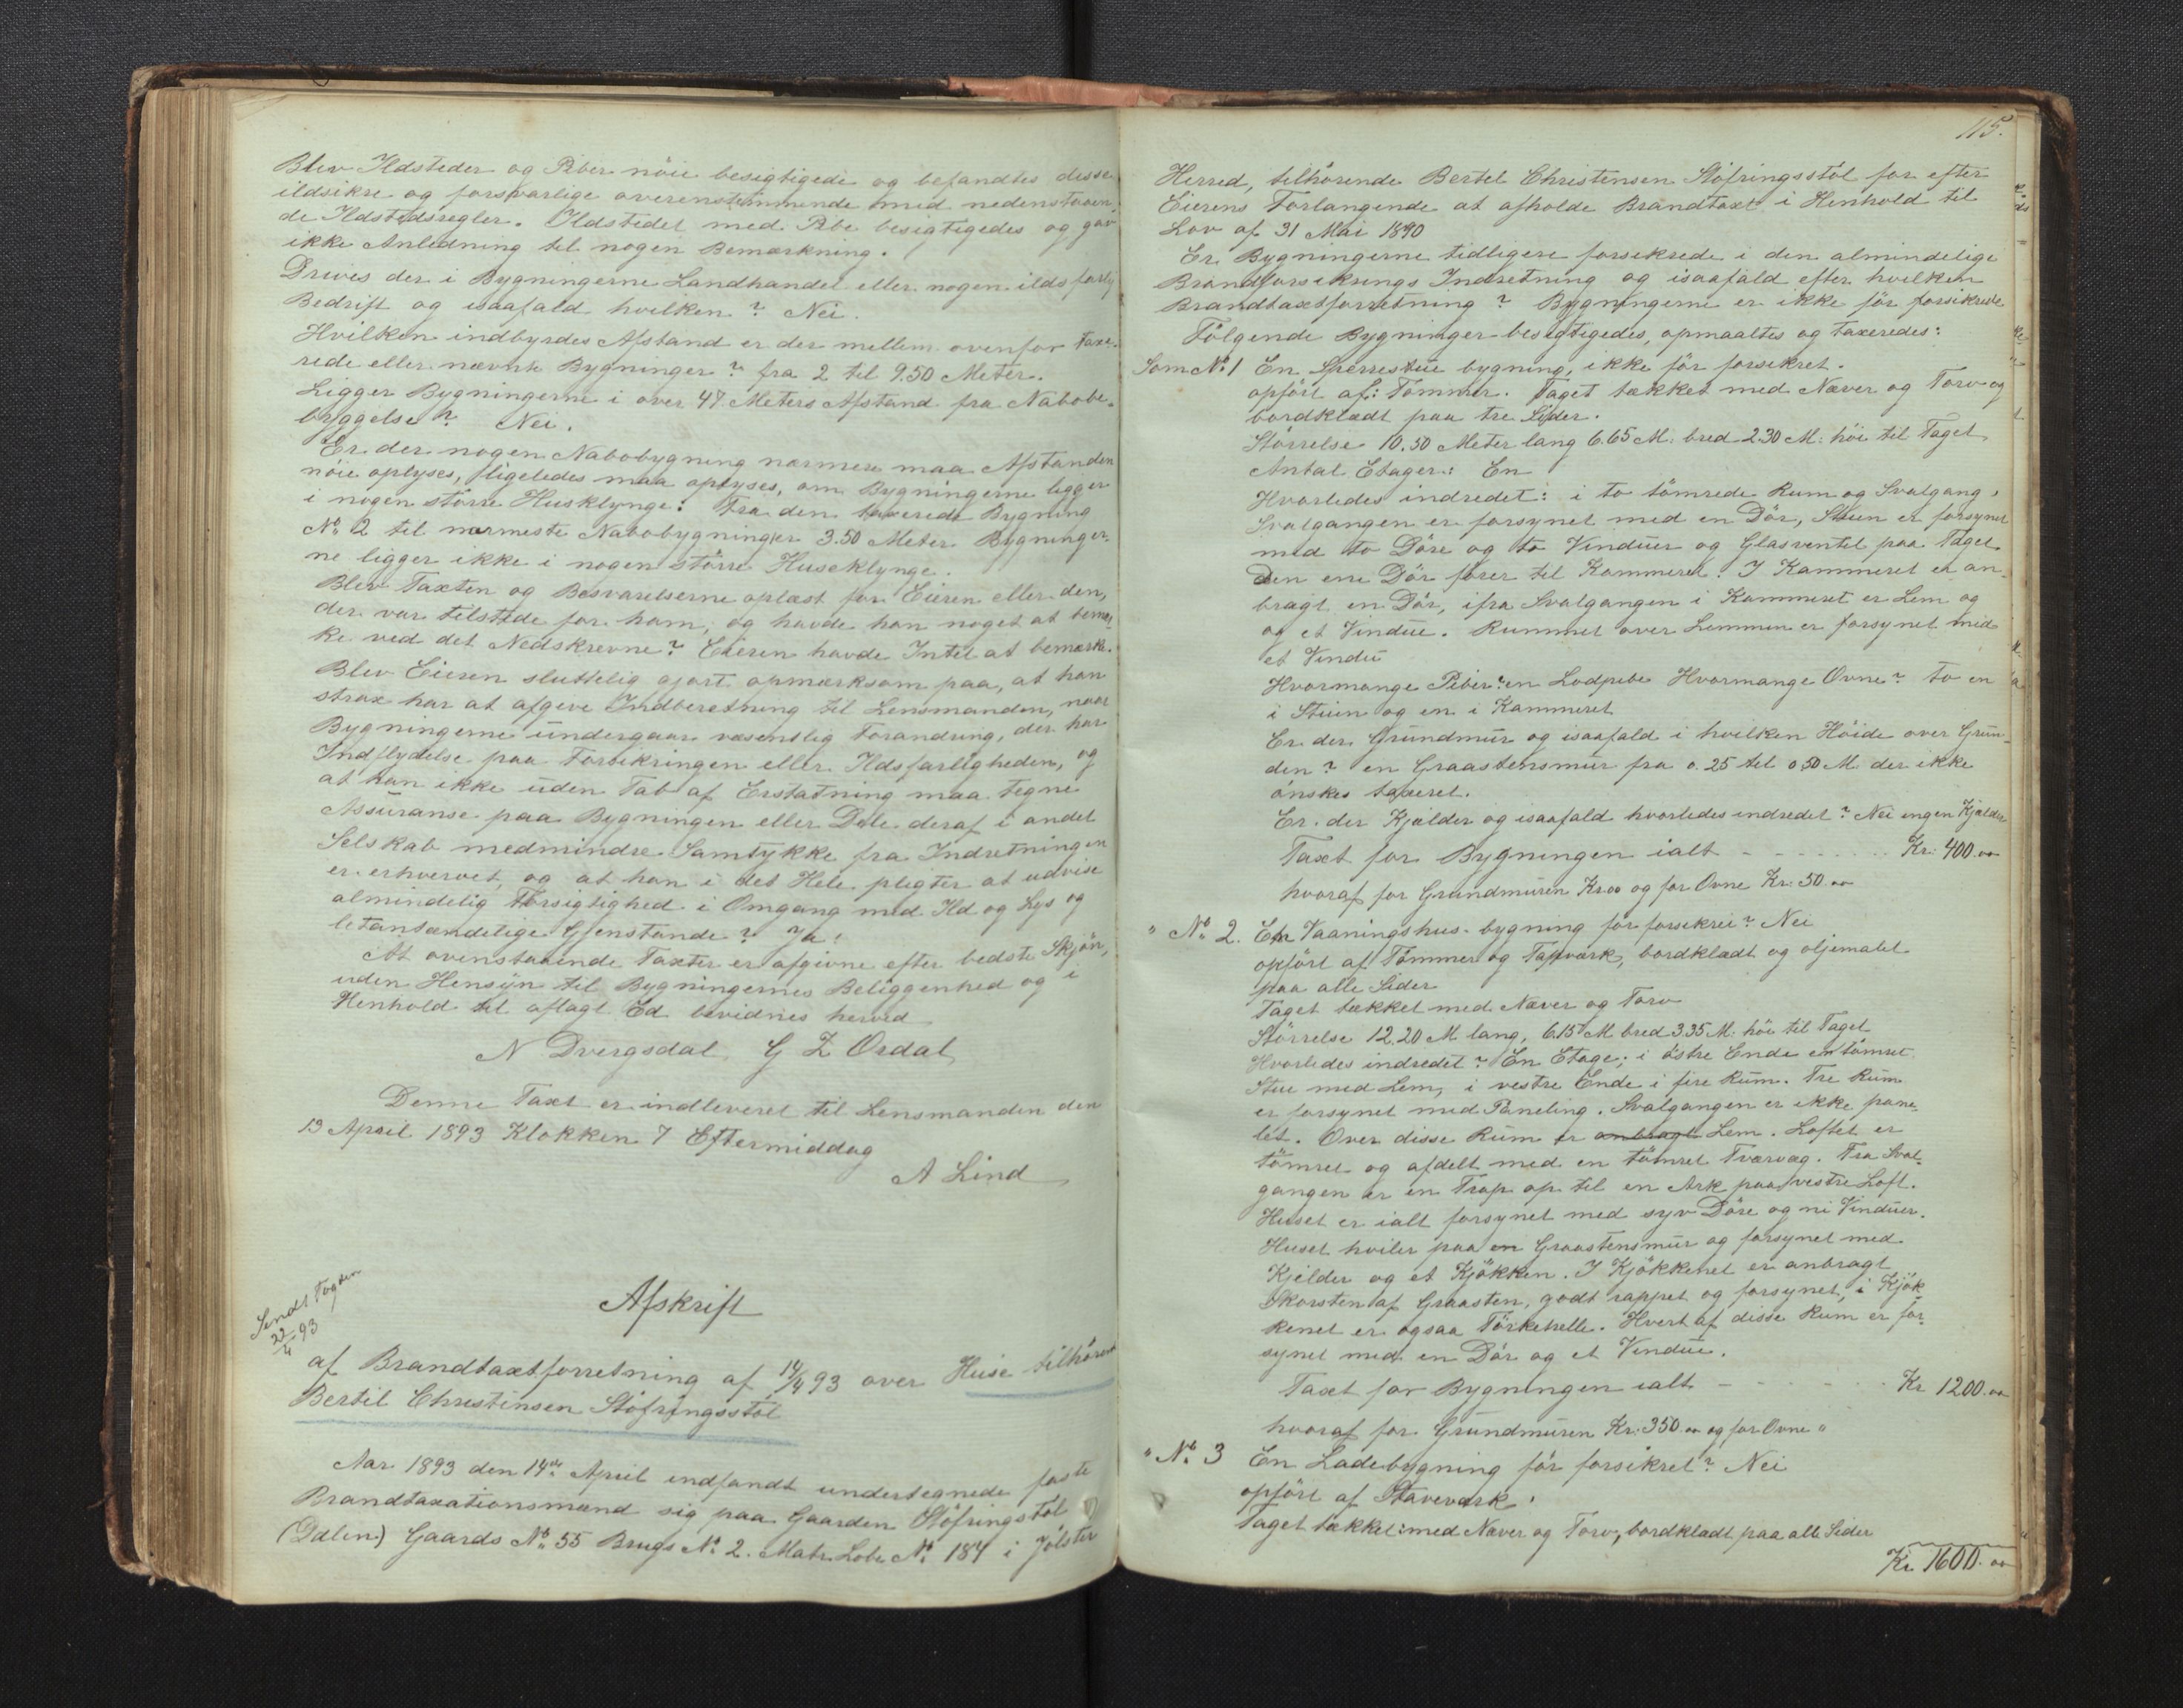 Blev Ildsteder og Piber nöie besigtigede og befandtes disse
ildsikre og forsvarlige overenstemmende med nedenstaaen-
de Ildstedsregler. Ildstedet med Pibe besigtigedes og gav
ikke Anledning til nogen Bemærkning.
Drives der i Bygningerne Landhandel eller nogen ildsfarlig
Bedrift og isaafald hvilken? Nei.
Hvilken indbyrdes Afstand er der mellem ovenfor taxe-
rede eller nævnte Bygninger? fra 2 til 9.50 Meter.
Ligger Bygningerne i over 47 Meters Afstand fra Nabobe-
byggelse? Nei.
Er der nogen Nabobygning nærmere maa Afstanden
nöie oplyses, ligeledes maa oplyses, om Bygningerne ligger
i nogen större Husklynge: Fra den taxerede Bygning
No 2 til nærmeste Nabobygninger 3.50 Meter. Bygninger-
ne ligger ikke i nogen större Huseklynge.
Blev Taxten og Besvarelserne oplæst for Eieren eller den,
der var tilstede for ham, og havde han noget at bemær-
ke ved det Nedskrevne? Eieren havde Intet at bemærke.
Blev Eieren sluttelig gjort opmærksom paa, at han
strax har at afgive Indberetning til Lensmanden, naar
Bygningerne undergaar væsentlig Forandring, der har
Indflydelse paa Forsikringen eller Ildsfarligheden, og
at han ikke uden Tab af Erstatning maa tegne
Assuranse paa Bygningen eller Dele deraf i andet
Selskab medmindre Samtykke fra Indretningen
er erhvervet, og at han i det Hele pligter at udvise
almindelig Forsigtighed i Omgang med Ild og Lys og
letantændelige Gjenstande? Ja!
At ovenstaaende Taxter er afgivne efter bedste Skjön,
uden Hensyn til Bygningernes Beliggenhed og i
Henhold til aflagt Ed bevidnes herved
N. Dvergsdal, G Z Ordal
Denne Taxt er indleveret til Lensmanden den
13 April 1893 Klokken 7 Eftermiddag
A Lind
Sendt Fogden
22/4 93
Afskrift
af Brandtaxtforretning af 14/4 93 over Huse tilhörende
Bertil Christensen Stöfringsstöl
Aar 1893 den 14de April indfandt undertegnede faste
Brandtaxationsmænd sig paa Gaarden Stöfringstöl
(Dalen) Gaards No 55 Brugs No 2. Matr. Lobe No 184 i Jölster
115.
Herred, tilhörende Bertel Christensen Stöfringsstöl for efter
Eierens Forlangende at afholde Brandtaxt i Henhold til
Lov af 31 Mai 1890
Er Bygningerne tidligere forsikrede i den almindelige
Brandforsikrings Indretning og isaafald efter hvilken
Brandtaxtforretning? Bygningerne er ikke för forsikrede
Fölgende Bygninger besigtigedes, opmaaltes og taxeredes:
Som No 1 En Sperrestue bygning, ikke för forsikret.
opfört af: Tömmer. Taget tækket med Næver og Torv og
bordklædt paa tre Sider.
Störrelse 10.50 Meter lang 6.65 M: bred 2.30 M: höi til Taget
Antal Etager: En
Hvorledes indredet: i to tömrede Rum og Svalgang,
Svalgangen er forsynet med en Dör, Stuen er forsynet
med to Döre og to Vinduer og Glasventil paa Taget.
Den ene Dör förer til Kammeret. I Kammeret er an-
bragt en Dör, ifra Svalgangen i Kammeret er Lem og
og et Vindue. Rummet over Lemmen er forsynet med
et Vindu
Hvormange Piber? en Lodpibe Hvormange Ovne? to en
i Stuen og en i Kammeret
Er der Grundmur og isaafald i hvilken Höide over Grun-
den? en Graastensmur fra 0.25 til 0.50 M. der ikke
önskes taxeret.
Er der Kjælder og isaafald hvorledes indredet? Nei ingen Kjælder
Taxt for Bygningen ialt - - - - - - Kr: 400.00
hvoraf for Grundmuren Kr 00 og for Ovne Kr: 50.00
" No 2. En Vaaningshus-bygning för forsikret? Nei
opfört af Tömmer og Tapværk, bordklædt og oljemalet
paa alle Sider
Taget tækket med Næver og Torv
Störrelse 12.20 M lang, 6.15 M bred 3.35 M. höi til Taget
Hvorledes indredet? En Etage; i östre Ende en tömret
Stue med Lem, i vestre Ende i fire Rum. Tre Rum
er forsynet med Paneling. Svalgangen er ikke pane-
let. Over disse Rum er anbragt Lem. Loftet er
tömret og afdelt med en tömret Tværvæg. Fra Sval-
gangen er en Trap op til en Ark paa vestre Loft.
Huset er ialt forsynet med syv Döre og ni Vinduer.
Huset hviler paa en Graastensmur og forsynet med
Kjelder og et Kjökken. I Kjökkenet er anbragt
Skorsten af Graasten, godt rappet og forsynet, i Kjök-
kenet er ogsaa Törkehelle. Hvert af disse Rum er for-
synet med en Dör og et Vindue.
Taxt for Bygningen ialt - - - - - Kr 1200.00
hvoraf for Grundmuren Kr: 350.00 og for Ovne "
" No 3 En Ladebygning för forsikret? Nei
opfört af Staveværk.
Taget tækket: med Næver og Torv, bordklædt paa alle Sider
Kr. 1600.00